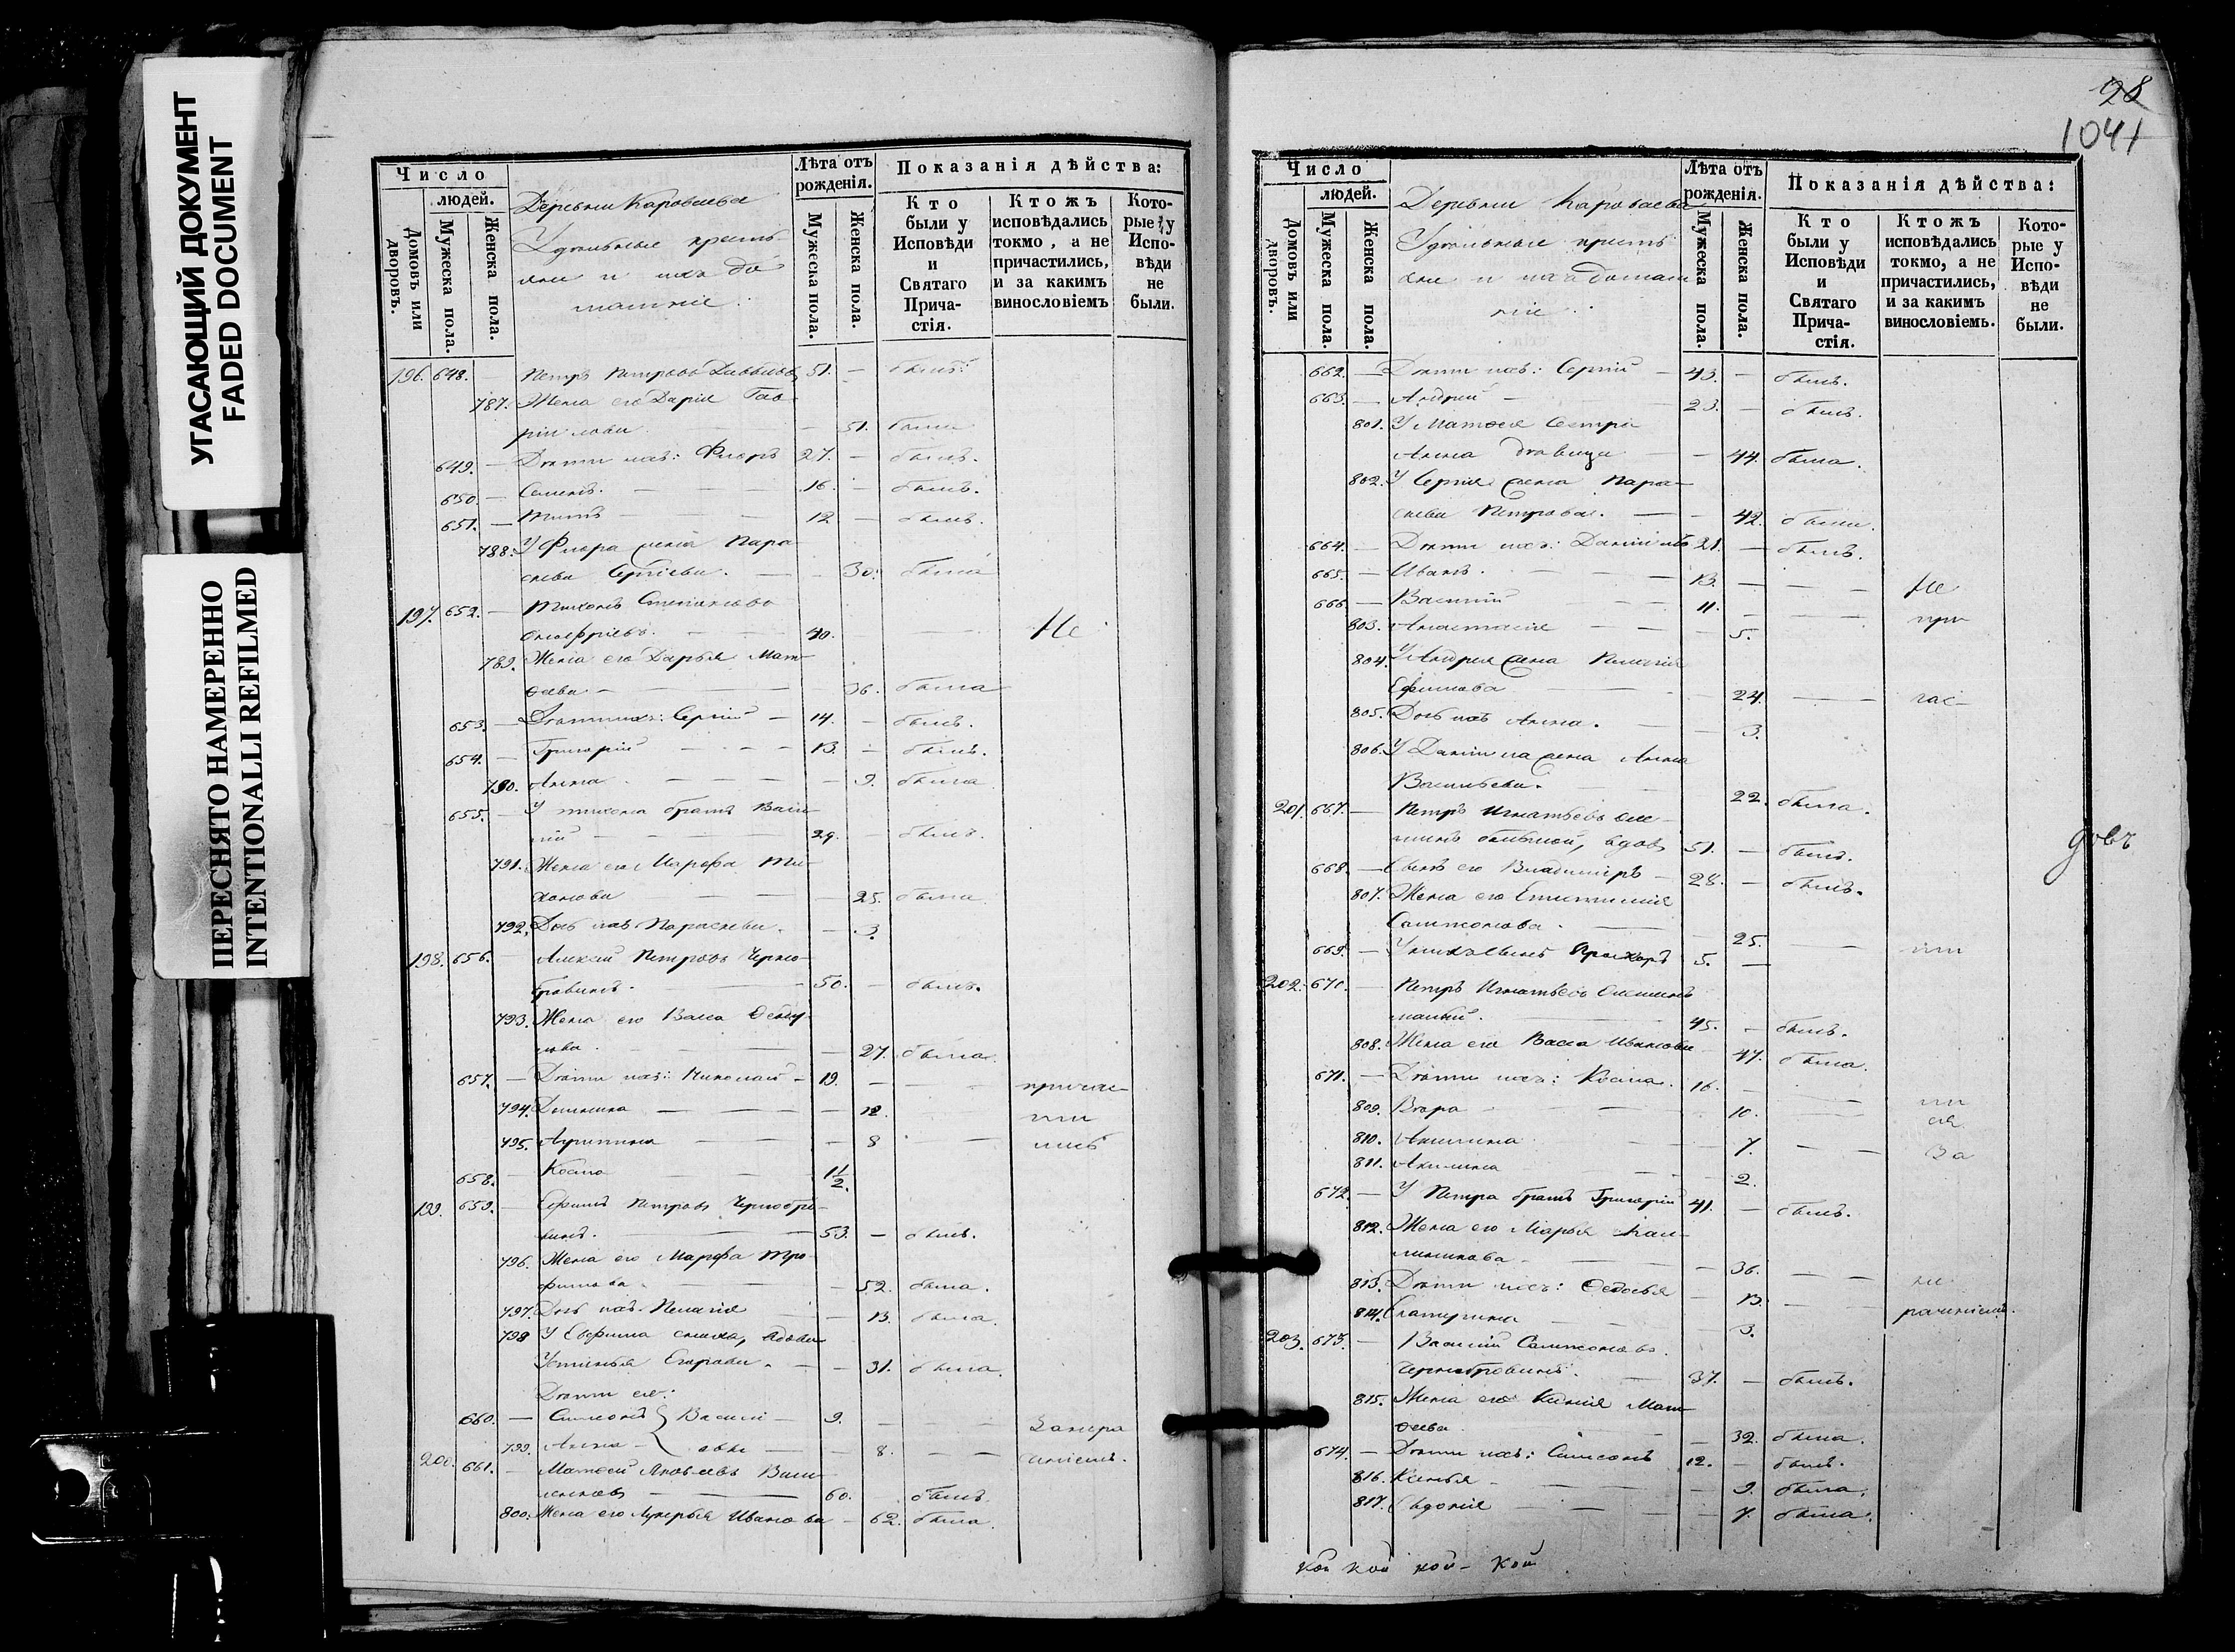 УГАСАЮЩИЙ ДОКУМЕНТ
FADED DOCUMENT
ПЕРЕСНЯТО НАМЕРЕННО
INTENTIONALLI REFILMED
Число
людей.
Домовъ или дворовъ.
Мужеска пола.
Женска пола.
Деревни Короваева
Удѣльные кресть-
яне и ихъ до-
машніе.
Лѣта отъ рожденія.
Мужеска пола.
Женска пола.
Показанія дѣйства:
Кто были у Исповѣди и Святаго Прича-стія.
Ктожъ исповѣдались токмо, а не причастились, и за какимъ винословіемъ
Кото-рые у Испо-вѣди не были.
196. 648. — Петръ Петровъ 51. — былъ.
787. Жена его Дарія Гав-
рилова — 51. была
649. — Дѣти ихъ: Флоръ 27. — былъ.
650 — Семенъ. — 16. — былъ.
651. — Титъ — 12 — былъ.
788. У Флора жена Пара-
скева Сергіева. — 30. была
197. 652. — Тихонъ Степановъ
40. — Не
789. Жена его Дарья Мат-
ѳеева — 36. была
653. — Дѣти ихъ: Сергій — 14. — былъ.
654. — Григорій — 13. — былъ.
790. Анна — 9. была
655. — У Тихона братъ Васи-
лій — 29. — былъ.
791. Жена его Марѳа Ти-
хонова — 25. была.
792. Дочь ихъ Параскева. — 3.
198. 656. — Алексій Петровъ Черно-
бровинъ. — 50. — былъ.
793. Жена его Васса
27. была.
657. — Дѣти ихъ: Николай — 19. — причас-
794. Домника — 12. ти
795. Агрипина — 8 лись
658. — Косма — 1½.
199. 659. — Ефимъ Петровъ Чернобро-
винъ. — 53. — былъ.
796. Жена его Марѳа Тро-
фимова — 52. была.
797. Дочь ихъ Пелагія — 13. была.
798 У Ефима сноха, вдова
Устинья Егорова. — 31. была.
Дѣти ея:
660. — Симеонъ } Василі — 9.
799. Анна — } евы — 8.
200. 661. — Матѳей Яковлевъ
60. былъ.
800. Жена его Лукерья Иванова — 62. была.
28
1041
Число
людей.
Домовъ или дворовъ.
Мужеска пола.
Женска пола.
Деревни Короваева
Удѣльные кресть-
яне и ихъ домаш-
ніе.
Лѣта отъ рожденія.
Мужеска пола.
Женска пола.
Показанія дѣйства:
Кто были у Исповѣди и Святаго Прича-стія.
Ктожъ исповѣдались токмо, а не причастились, и за какимъ винословіемъ.
Кото-рые у Испо-вѣди не были.
662. — Дѣти ихъ: Сергій — 43. — былъ.
663. — Андрей — 23. — былъ.
801. У Матѳея сестра
Анна дѣвица — 44. была.
802. У Сергія жена Пара-
скева Петрова. — 42. была.
664. — Дѣти ихъ: Даніилъ 21. — былъ.
665. — Иванъ. — 13. — Не
666. — Василій — 11. — при
803. Анастасія — 5.
804. У Андрея жена Пелагія
Ефимова — 24. — час-
805. Дочь ихъ Анна. — 3.
806. У Даніила жена Анна
Васильева. — 22. была.
201. 667. — Петръ Игнатьевъ
большой, вдовъ 51. — былъ.
вдовъ
668. — Сынъ его Владиміръ — 28. — былъ.
807. Жена его
Самсонова. — 25. — ти
669. — У нихъ сынъ Прохоръ 5. —
202. 670. — Петръ Игнатьевъ
малый. — 45. — былъ.
808. Жена его Васса Иванова 47. была.
671. — Дѣти ихъ: Косма. 16. — ли
809. Вѣра — 10. ся
810. Акилина — 7. — За
811. Акилина — 2.
672. — У Петра братъ Григорій 41. — былъ.
812. Жена его Марья Кал-
линикова — 36. — не
813. Дѣти ихъ: Ѳедосья — 13. —
814. Екатерина — 3. раченіемъ.
203. 673. — Василій Самсоновъ
Чернобровинъ. — 37. — былъ.
815. Жена его Ксенія Мат-
ѳеева. — 32. была.
674. — Дѣти ихъ: Самсонъ 12. — былъ.
816. Ксенья — 9. была.
817. Евдокія — 7. была.
кой кой кой - кой